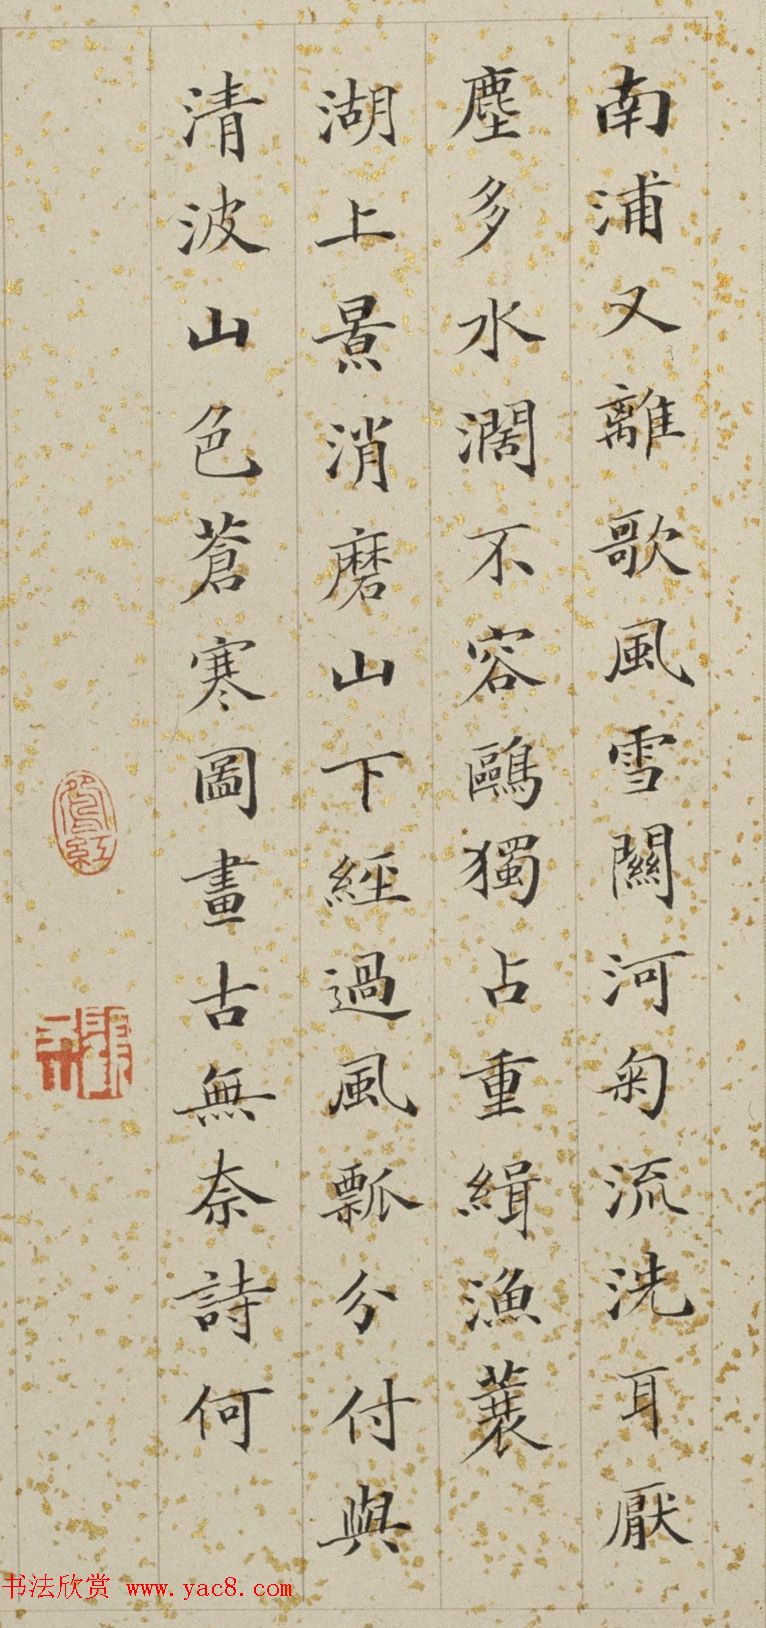 南浦又離歌風雪關河匊流洗耳厭
塵多水濶不容鷗獨占重緝漁蓑
湖上景消磨山下經過風瓢分付與
清波山色蒼寒圖畫古無奈詩何
书法欣赏 www.yac8.com